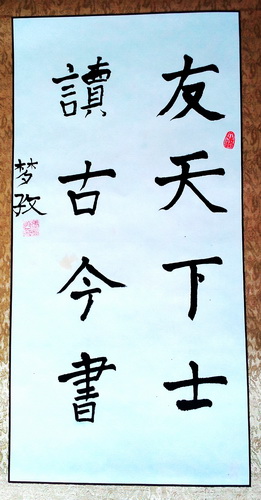 友天下士
讀古今書
梦孜